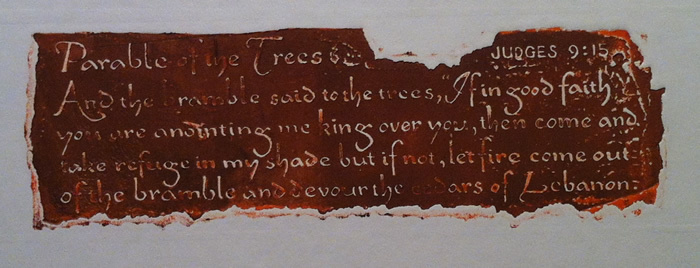 Parable of the Trees JUDGES 9:15
And the bramble said to the trees, "If in good faith
you are anointing me king over you, then come and
take refuge in my shade but if not, let fire come out
of the bramble and devour the cedars of Lebanon.